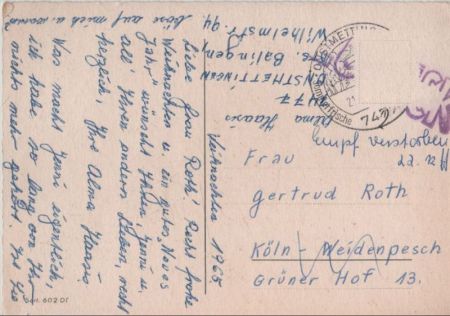 Weihnachten 1965
Liebe Frau Roth! Recht frohe
Weihnachten u. ein gutes, Neues
Jahr wünscht Ihnen, Jenni u.
all' Ihren andern Lieben, recht
herzlich, Ihre Alma Haasis
Was macht Jenni eigentlich,
ich habe so lang von Ihr
nichts mehr gehört. Ist Sie
böse auf mich u. warum?
Alma Haasis
7477
ONSTMETTINGEN
Krs. Balingen,
Wilhelmstr. 94
ONSTMETTINGEN
747
Empf verstorben
Frau
Gertrud Roth
Köln-Weidenpesch
Grüner Hof 13.
Best. 602 01